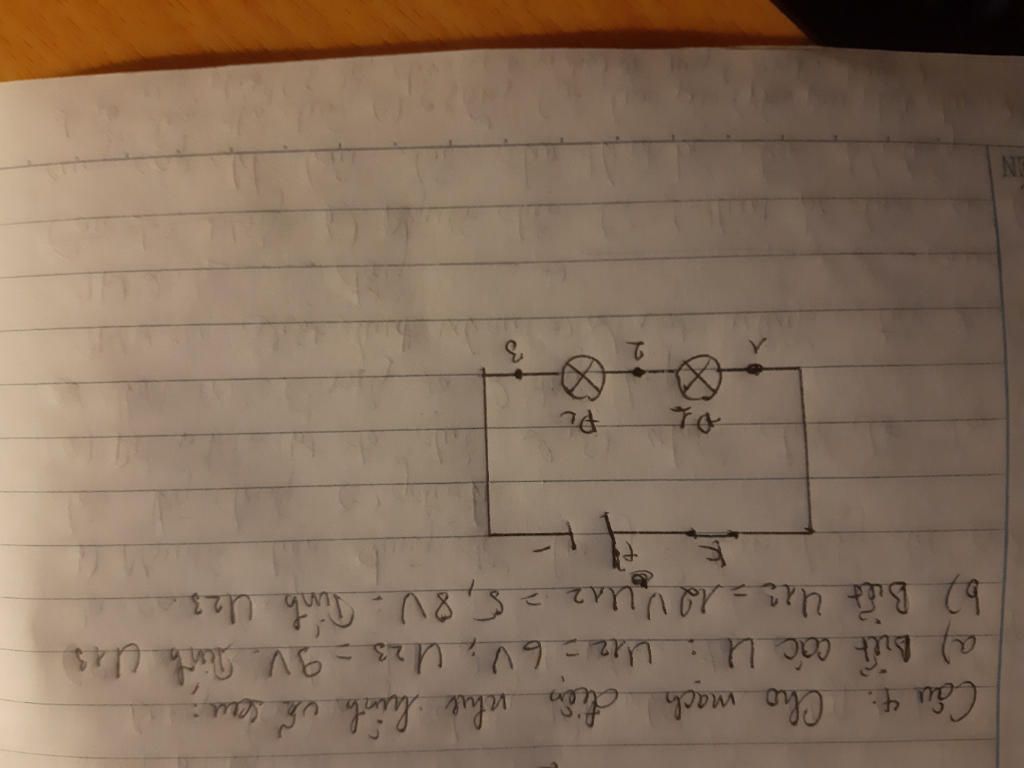 Câu 4: Cho mạch điện như hình vẽ sau:
a) Biết các U: U12 = 6V; U23 = 9V. Tính U13
b) Biết U13 = 12V, U12 = 5,8V. Tính U23.
+ -
K
Đ1 Đ2
1 2 3